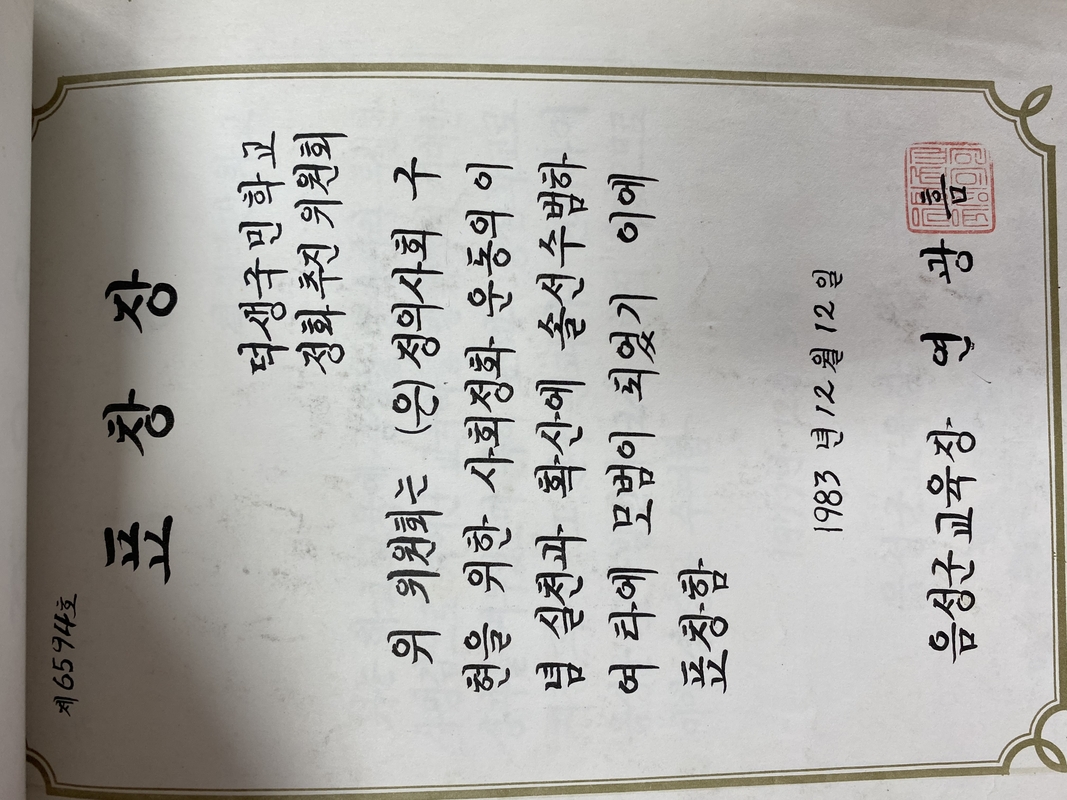 제6594호
표 창 장
덕생국민학교
정화추진위원회
위 위원회는 (은) 정의사회 구
현을 위한 사회정화 운동의 이
념 실천과 확산에 솔선수범하
여 타에 모범이 되었기 이에
표창함
1983 년 12 월 12 일
음성군교육장 연 광 흠